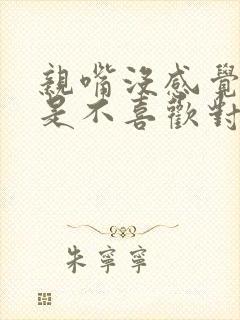 親嘴沒感覺
是不喜歡對
朱寧寧